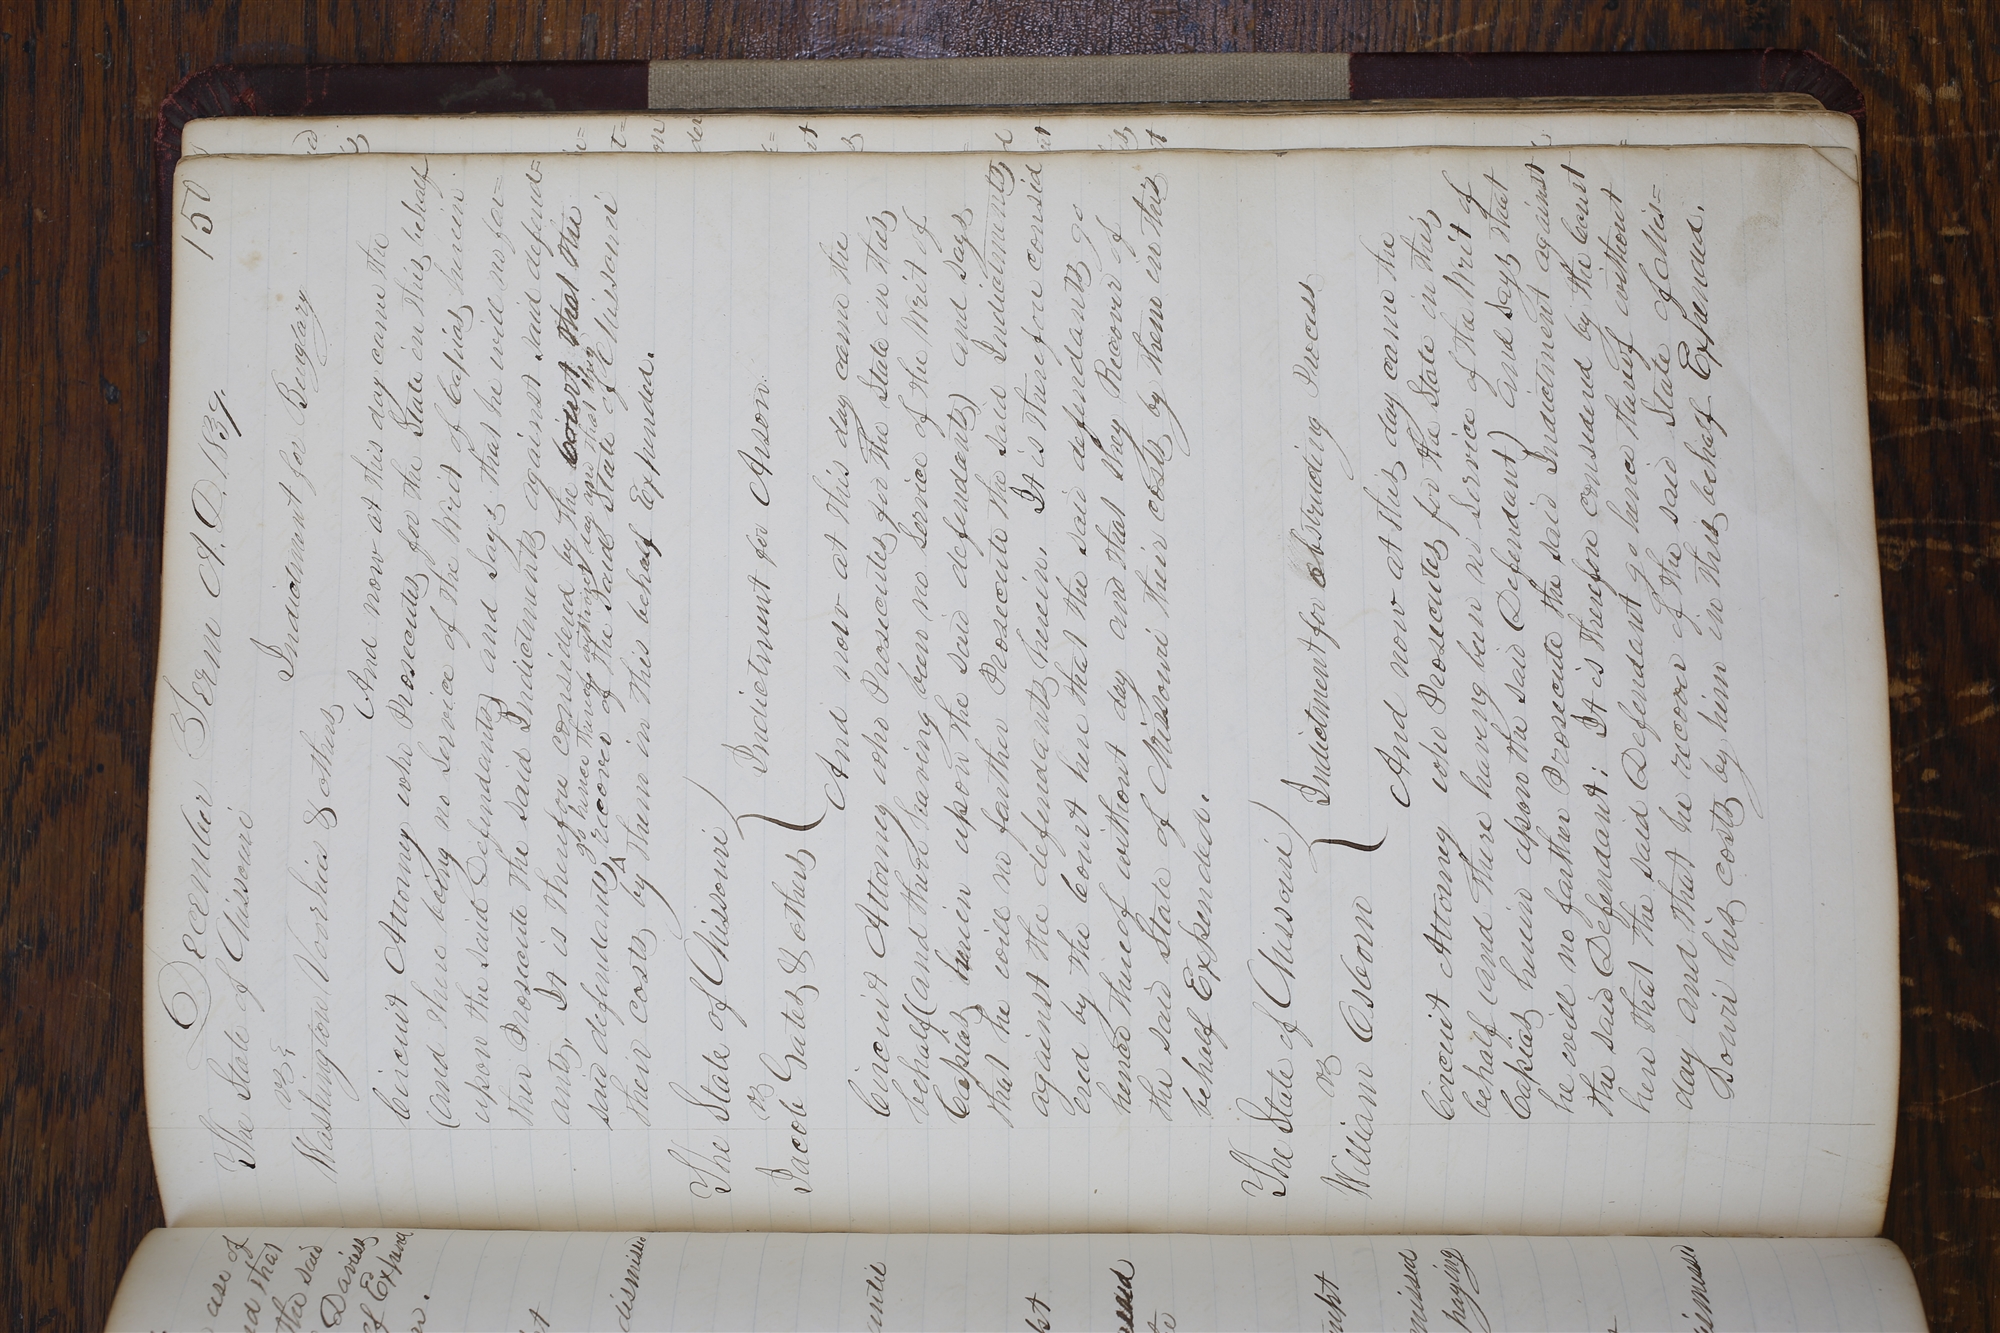 December Term A.D. 1839. 150
The State of Missouri
vs
Indictment for Burgary
Washington Voorhies & others
And now at this day came the
Circuit Attorney who Prosecutes for the State in this behalf
(and there being no Service of the Writ of Capias herein
upon the said Defendants) and Says that he will no far=
ther Prosecute the said Indictments against said defend=
ants, It is therefore considered by the court that the
go hence thereof without day and that they
said defendants recover of the said State of Missouri
their costs by them in this behalf Expended.
The State of Missouri
vs
Indictment for Arson
Jacob Gates & others
And now at this day came the
Circuit Attorney who Prosecutes for the State in this
behalf (and there having been no Service of the Writ of
Capias herein upon the said defendants) and says
that he will no farther Prosecute the said Indictments
against the defendants herein, It is therefore consid
ered by the Court here that the said defendants go
hence thereof without day and that they Recover of
the said State of Missouri their costs by them in this
behalf Expended.
The State of Missouri
vs
Indictment for obstructing Process
William Osborn
And now at this day came the
Circuit Attorney who Prosecutes for the State in this
behalf (and There having been no Service of the Writ of
Capias herein upon the said Defendant) and Says that
he will no farther Prosecute the said Indictment against
the said Defendant: It is therefore considered by the Court
here that the said Defendant go hence thereof without
day and that he recover of the said State of Miss=
souri his costs by him in this behalf Expended.
ase of
nd that
the said
Daviess
of Expend
dismissed
paying